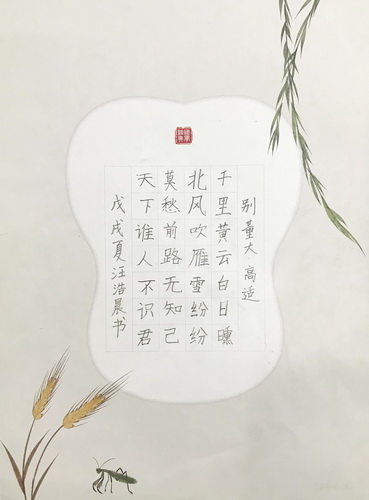 别董大 高适
千里黄云白日曛
北风吹雁雪纷纷
莫愁前路无知己
天下谁人不识君
戊戌夏汪浩晨书